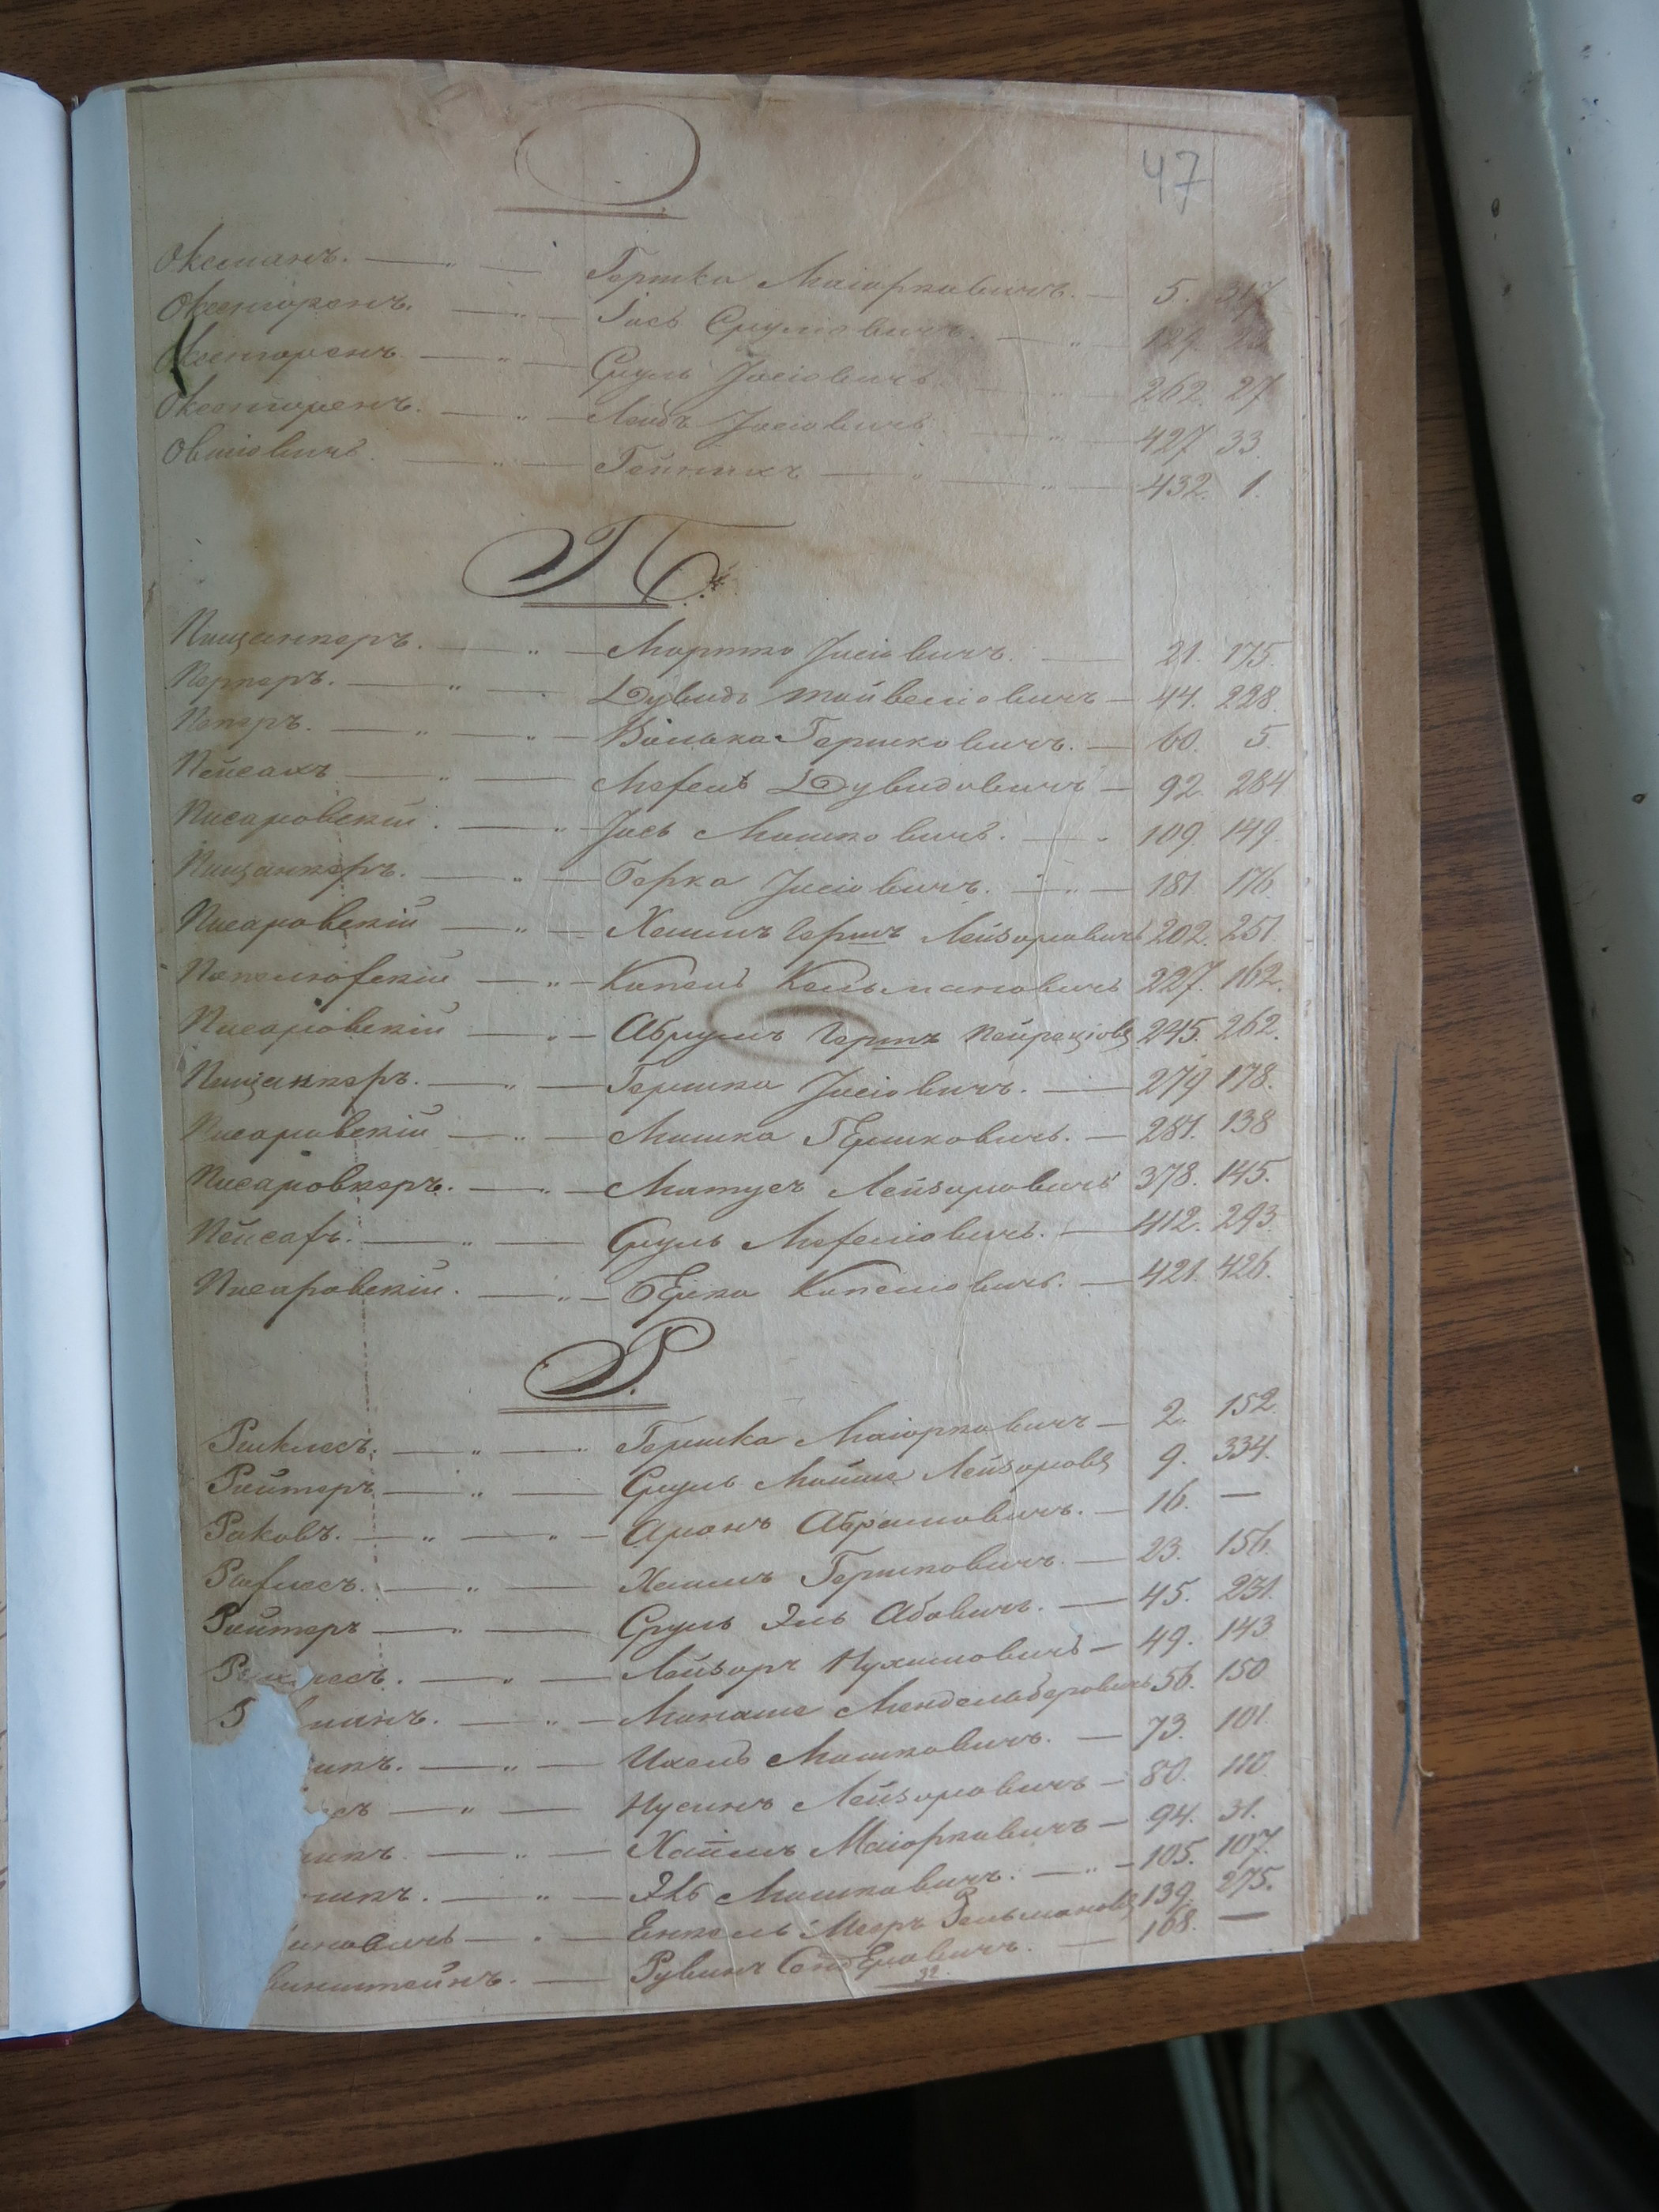 47
О
Оксманъ. Гершка Маіорковичъ. 5.
Оксенгоренъ. Іось Сруліовичъ.
Оксенгоренъ Сруль Іосіовичъ 262. 27
Оксенгоренъ. Лейбъ Іосіовичъ 427 33.
Овшіовичъ Гейнихъ 432. 1.
П.
Пищанкеръ. Моршко Іосіовичъ. 21. 175.
Перперъ. Дувидъ Шайвеліовичъ 44. 228.
Пеперъ. Волька Гершковичъ. 60. 5.
Пейсахъ Мехель Дувидовичъ 92. 284
Писаровскій. Іось Мошковичъ. 109. 149.
Пищанкеръ. Берка Іосіовичъ. 181. 176
Писаровскій Хаимъ Гершъ Лейзоровичъ 202. 251.
Копель Кельмановичъ 227. 162.
Писаровскій Абрумъ Гершъ 245. 262.
Пищанкеръ. Гершка Іосіовичъ. 279 178.
Писаровскій Мошка Гершковичъ. 281. 138
Писаровкеръ. Матусъ Лейзоровичъ 378. 145.
Пейсахъ. Сруль Мехеліовичъ. 412. 293.
Писаровскій. Берка Копеліовичъ. 421. 426.
Р.
Рихлесъ. Гершка Маіорковичъ 2. 152.
Рейтеръ Сруль Мойше Лейзоров. 9. 334.
Раковъ. Аронъ Абрамовичъ. 16. —
Рахлесъ. Хаимъ Гершковичъ. 23. 156.
Рейтеръ Сруль Эль Абовичъ. 45. 231.
Лейзоръ Нухимовичъ 49. 143
манъ. Манаше Мендельберовичъ 56. 150
икъ. Ихель Мошковичъ. 73. 101.
есъ Нусинъ Лейзоровичъ 80. 110.
икъ. Хаимъ Маіорковичъ 94. 31.
икъ. Эль Мошковичъ. 105. 107.
иновичъ Енкель Мееръ Зельманов. 139. 275.
винштейнъ. Рувинъ Сендеровичъ. 168. —
92.